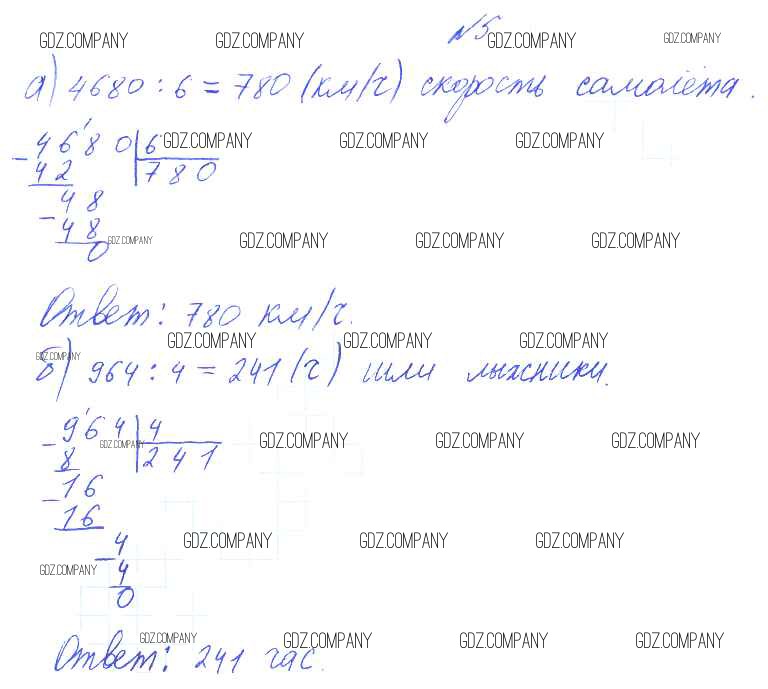 №5
GDZ.COMPANY GDZ.COMPANY GDZ.COMPANY GDZ.COMPANY
а) 4680 : 6 = 780 (км/ч) скорость самолёта.
4680 6 GDZ.COMPANY GDZ.COMPANY GDZ.COMPANY
− 42 780
48
− 48 GDZ.COMPANY GDZ.COMPANY GDZ.COMPANY GDZ.COMPANY
0
Ответ: 780 км/ч.
GDZ.COMPANY GDZ.COMPANY GDZ.COMPANY GDZ.COMPANY
б) 964 : 4 = 241 (ч) шли лыжники.
964 4
− 8 241 GDZ.COMPANY GDZ.COMPANY GDZ.COMPANY GDZ.COMPANY
16
− 16
4 GDZ.COMPANY GDZ.COMPANY GDZ.COMPANY
− 4 GDZ.COMPANY
0
GDZ.COMPANY GDZ.COMPANY GDZ.COMPANY GDZ.COMPANY
Ответ: 241 час.